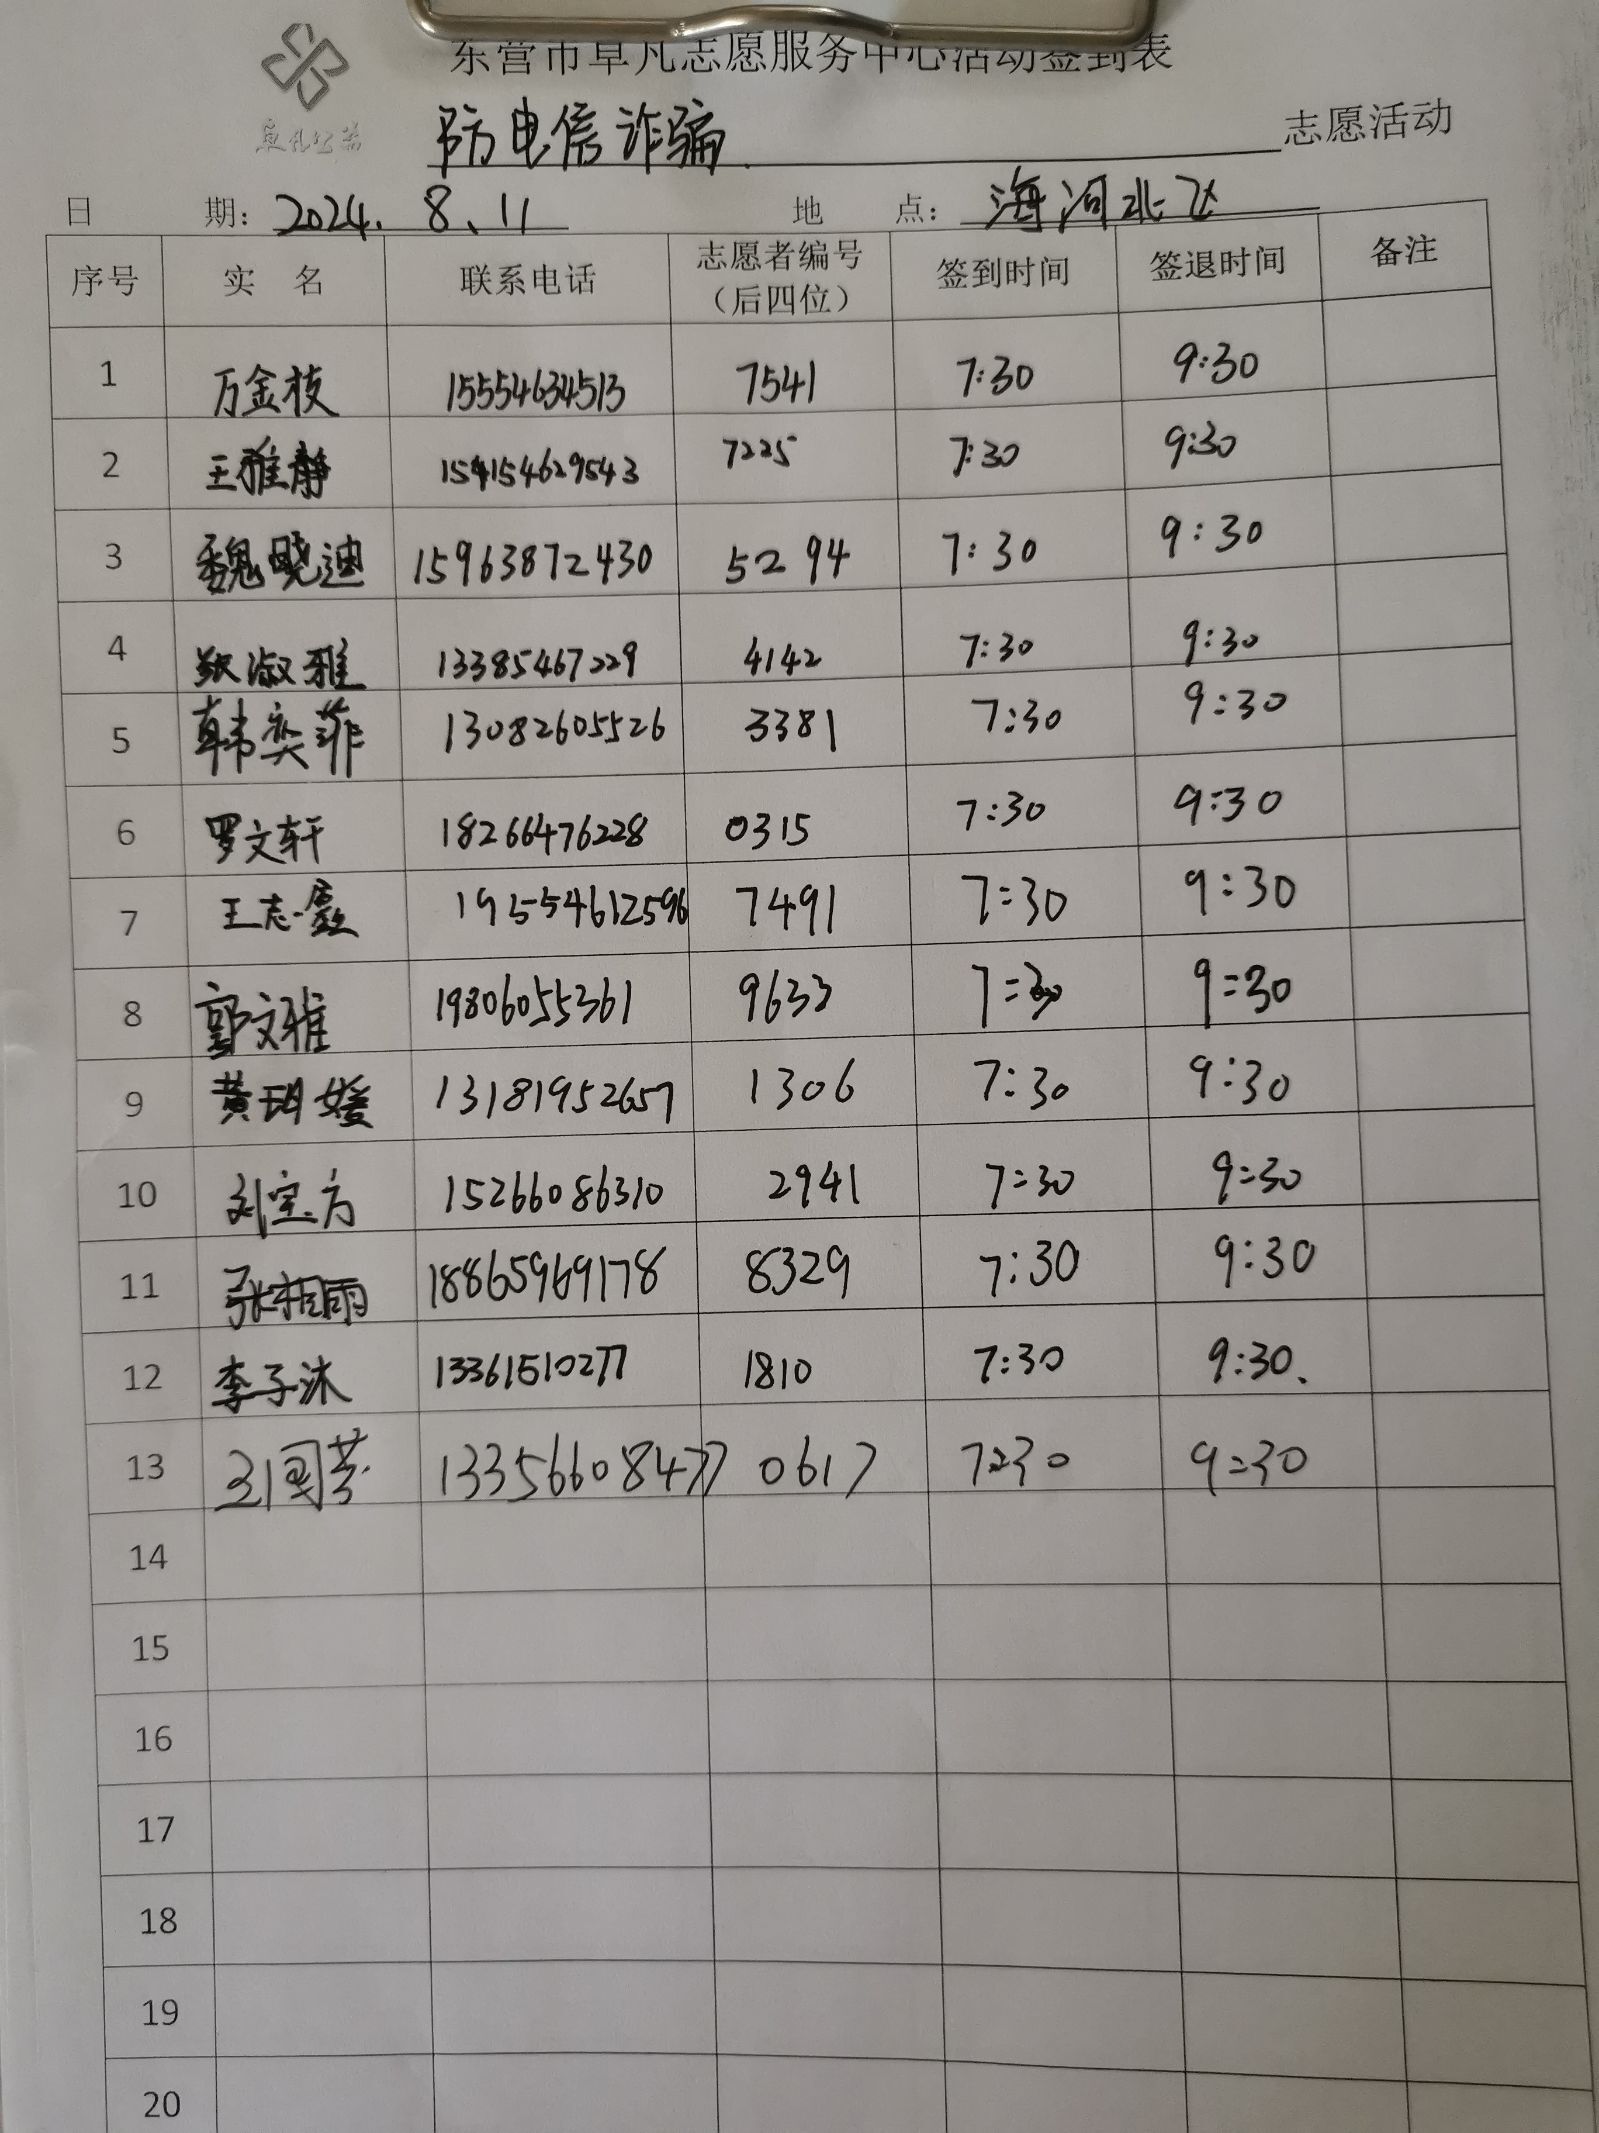 东营市草凡志愿服务中心活动签到表
防电信诈骗 志愿活动
日期: 2024.8、11 地点: 海河北飞
序号 实名 联系电话 志愿者编号（后四位） 签到时间 签退时间 备注
1 万金枝 15554634513 7541 7:30 9:30
2 王雅静 7225 7:30 9:30
3 魏晓迪 15963872430 5294 7:30 9:30
4 淑雅 13385467229 4142 7:30 9:30
5 韩奕菲 13082605526 3381 7:30 9:30
6 罗文轩 18266476228 0315 7:30 9:30
7 王志 195554612596 7491 7:30 9:30
8 郭文雅 19806055361 9633 7:30 9:30
9 黄玥媛 13181952657 1306 7:30 9:30
10 刘宝方 15266086310 2941 7:30 9:30
11 张相雨 18865969178 8329 7:30 9:30
12 李子沐 13361510277 1810 7:30 9:30、
13 13356608477 0617 7:30 9:30
14
15
16
17
18
19
20